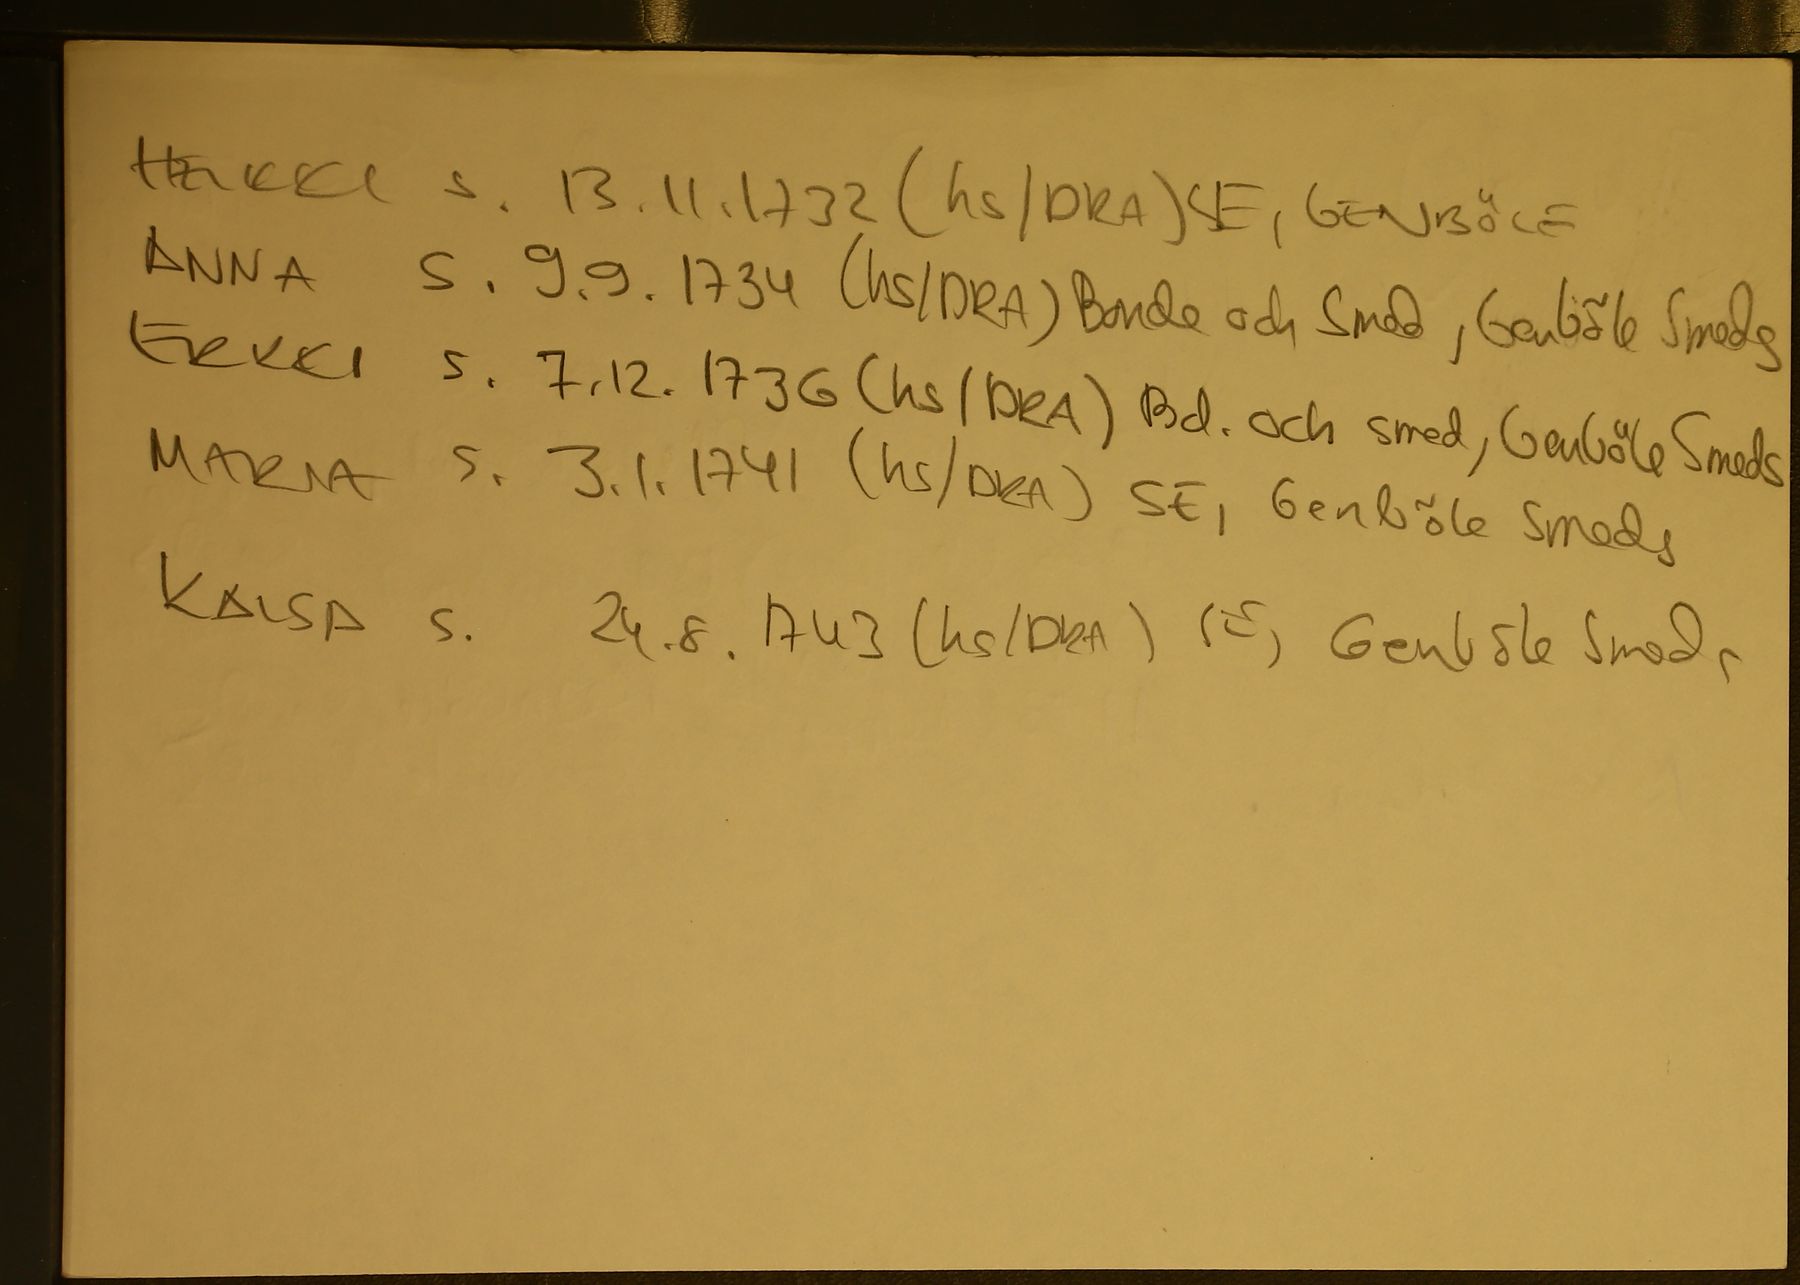 HEIKKI s. 13.11.1732 (hs/DRA) SE, GENBÖLE
ANNA s. 9.9.1734 (hs/DRA) Bonde och Smed, Genböle Smeds
ERKKI s. 7.12.1736 (hs/DRA) Bd. och smed, Genböle Smeds
MARIA s. 3.1.1741 (hs/DRA) SE, Genböle Smeds
KAISA s. 24.8.1743 (hs/DRA) SE, Genböle Smeds